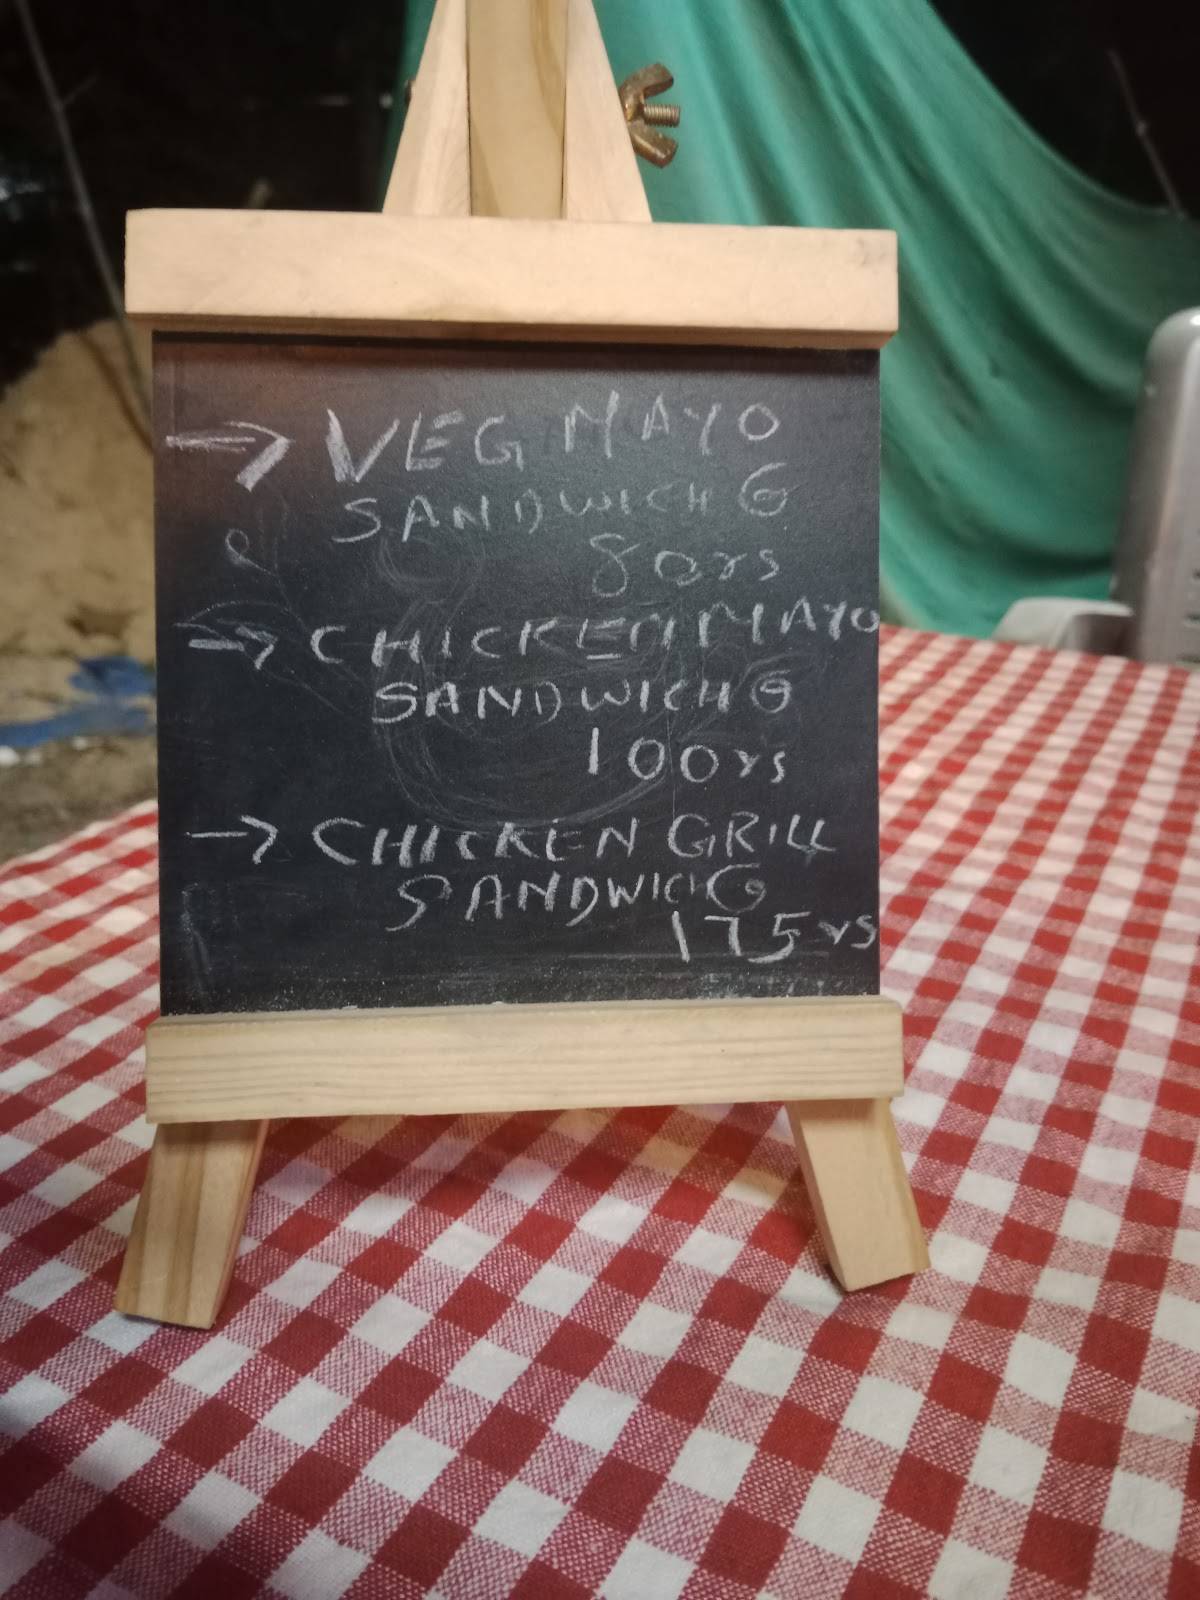 → VEG MAYO
SANDWICH G
80rs
→ CHICKEN MAYO
SANDWICH G
100rs
→ CHICKEN GRILL
SANDWICH G
175rs